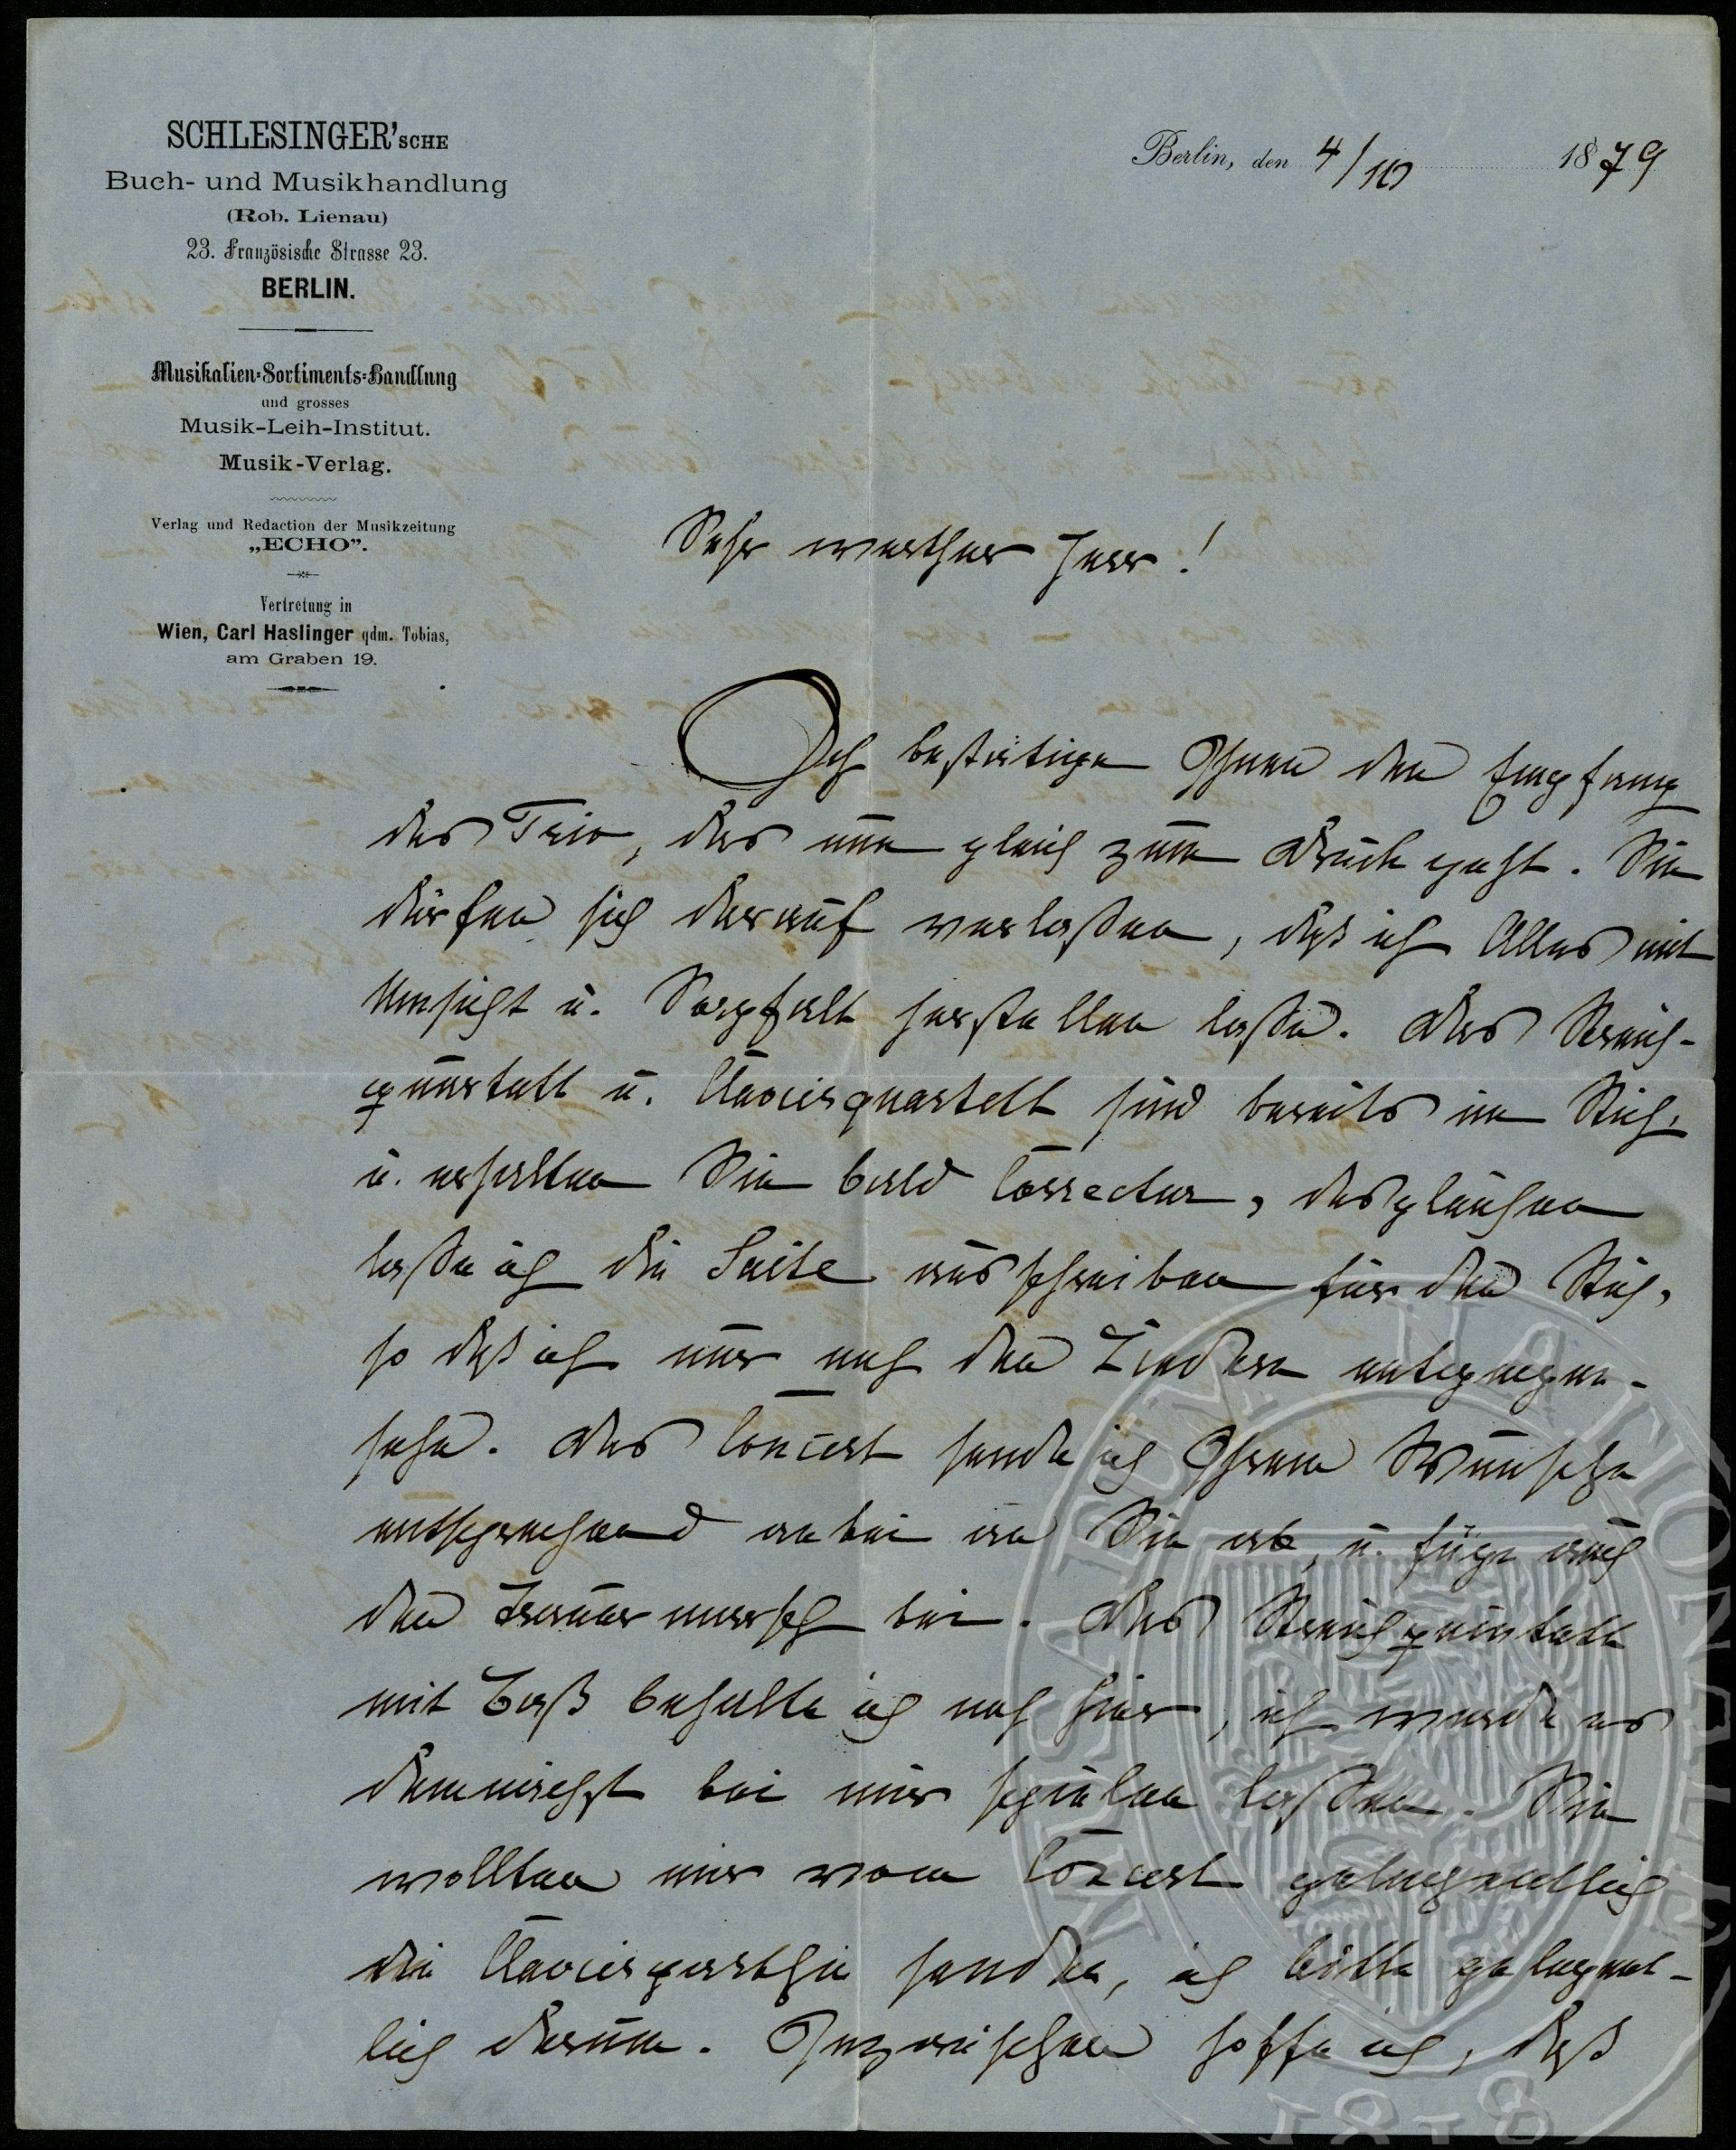 SCHLESINGER'SCHE
Buch- und Musikhandlung
(Rob. Lienau)
23. Französische Strasse 23.
BERLIN.
Musikalien-Sortiments-Handlung
und grosses
Musik-Leih-Institut.
Musik-Verlag.
Verlag und Redaction der Musikzeitung
„ECHO”.
Vertretung in
Wien, Carl Haslinger qdm. Tobias,
am Graben 19.
Berlin, den 4/10 1879
Sehr werther Herr!
Ich bestätige Ihnen den Empfang
des Trio, das nun gleich zum Druck geht. Sie
dürfen sich darauf verlaßen, daß ich Alles mit
Umsicht u. Sorgfalt herstellen laße. Das Streich-
quartett u. Clavierquartett sind bereits im Stich,
u. erhalten Sie bald Correctur, desgleichen
laße ich die Suite ausschreiben für den Stich,
so daß ich nur noch den Liedern entgegen-
sehe. Das Concert sende ich Ihrem Wunsche
entsprechend anbei an Sie ab, u. füge auch
den Trauermarsch bei. Das Streichquintett
mit Baß behalte ich noch hier, ich werde es
demnächst bei mir spielen laßen. Sie
wollten mir vom Concert gelegentlich
die Clavierparthie senden, ich bitte gelegent-
lich darum. Inzwischen hoffe ich, daß
MUSAEUM NATIONALE
1818